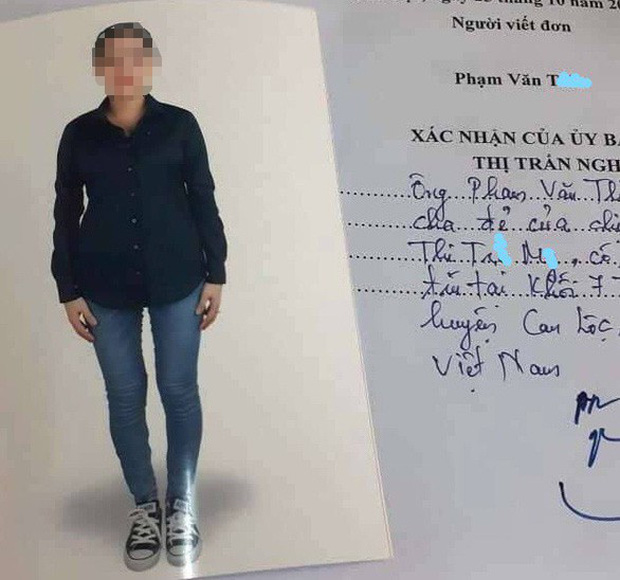 tháng 10 năm 20
Người viết đơn
Phạm Văn T
XÁC NHẬN CỦA ỦY BA
THỊ TRẤN NGH
Ông Phạm Văn Th
cha đẻ của chị
Thị M , có
tại Khối 7
huyện Can Lộc,
Việt Nam